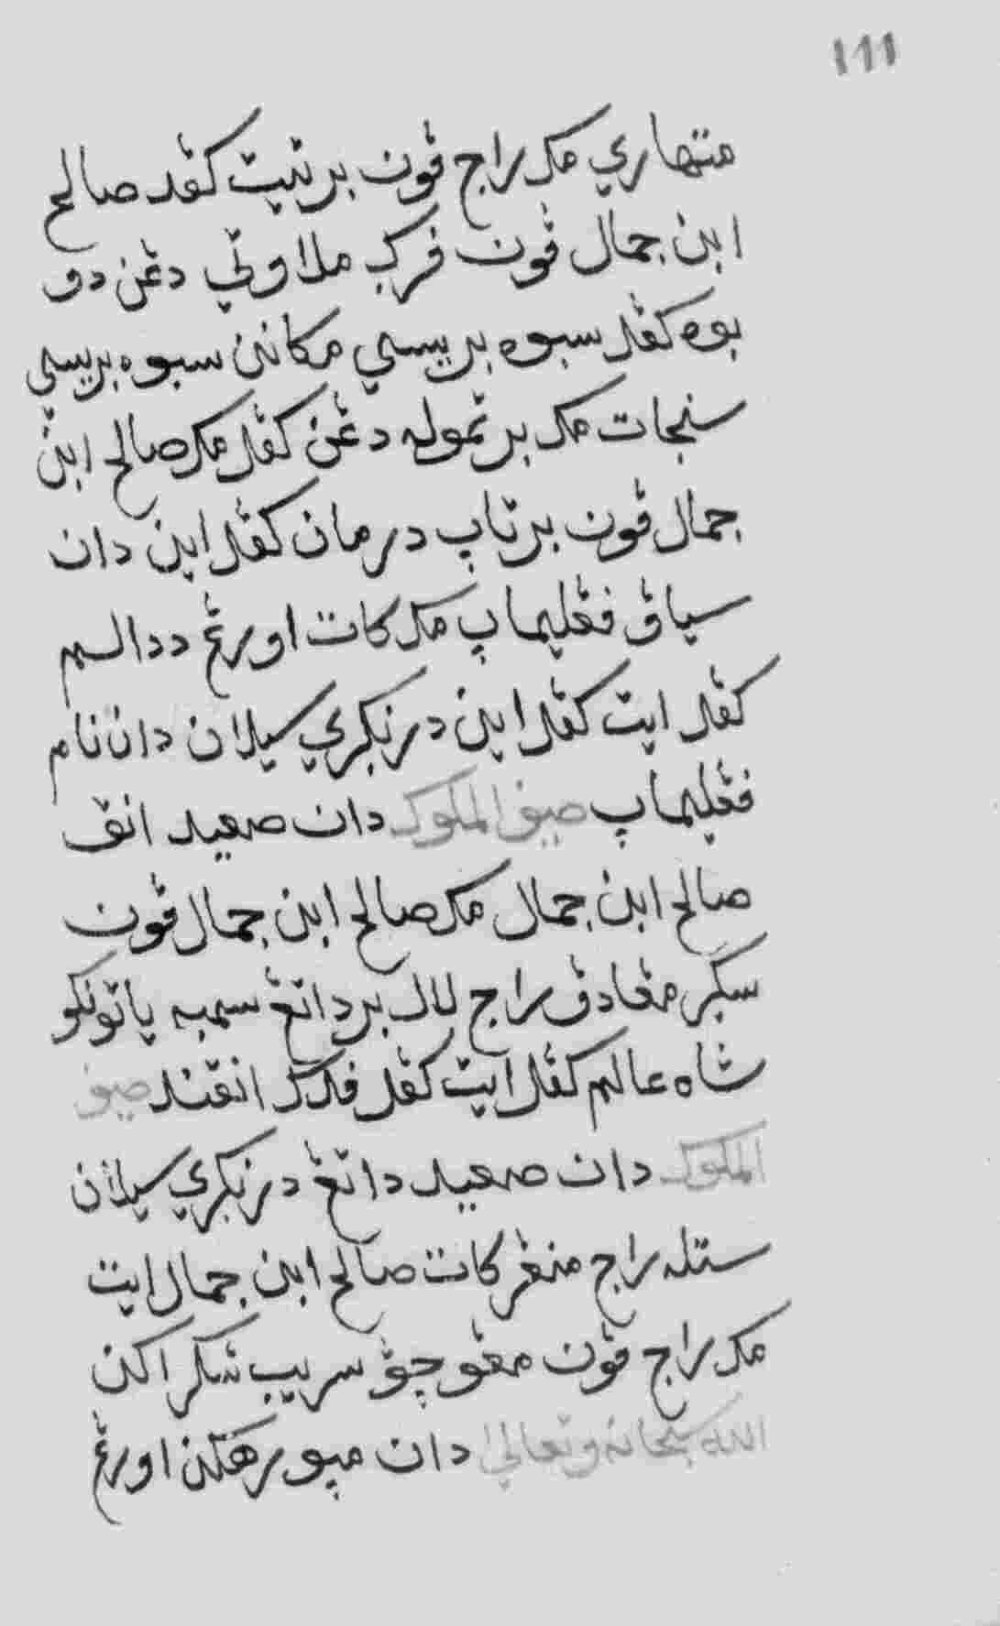 111
متهاري مک راج ڤون برتيت کڤد صالح
ابن جمال ڤون ڤرݢي ملاوتي دڠن دو
بوه کڤل سبوه بريسي مکانن سبوه بريسي
سنجات مک برتموله دڠن کڤل مک صالح ابن
جمال ڤون برتاڽ درمان کڤل اين دان
سياڤ ڤڠليماڽ مک کات اورڠ ددالم
کڤل ايت کڤل اين درنݢري سيلان دان نام
ڤڠليماڽ صيف الملوک دان صعيد انق
صالح ابن جمال مک صالح ابن جمال ڤون
سݢر مڠادڤ راج لال برداتڠ سمبه ياتوانکو
شاه عالم کڤل ايت کڤل ڤدک انقند صيف
الملوک دان صعيد داتڠ درنݢري سيلان
ستله راج منڠر کات صالح ابن جمال ايت
مک راج ڤون مڠوچڤ سريب شکر اکن
الله سبحانه وتعالى دان مپورهکن اورڠ